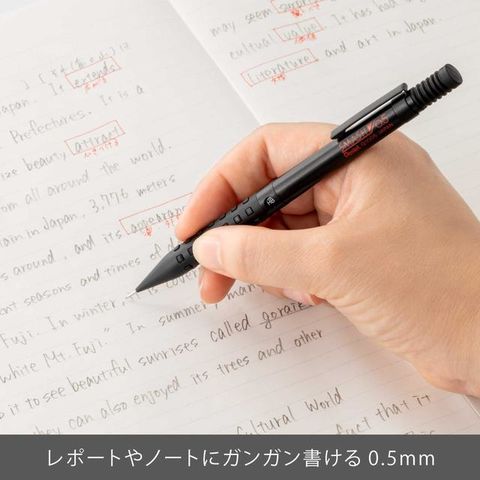 may seem
cultural value. It has had
literature and art in Japan.
Japan. It extends
Prefectures. It is a
size beauty attract
from all around the world.
tain in Japan, 3,776 meters
, and its appearance
s around, and
ent seasons and times of
Fuji. In winter, it is cove
white Mt. Fuji." In summer, many
it to see beautiful sunrises called goraik
they can also enjoyed its trees and other
Cultural World
fact that it
SMASH 0.5
Pentel Q1005 JAPAN
HB
レポートやノートにガンガン書ける 0.5mm